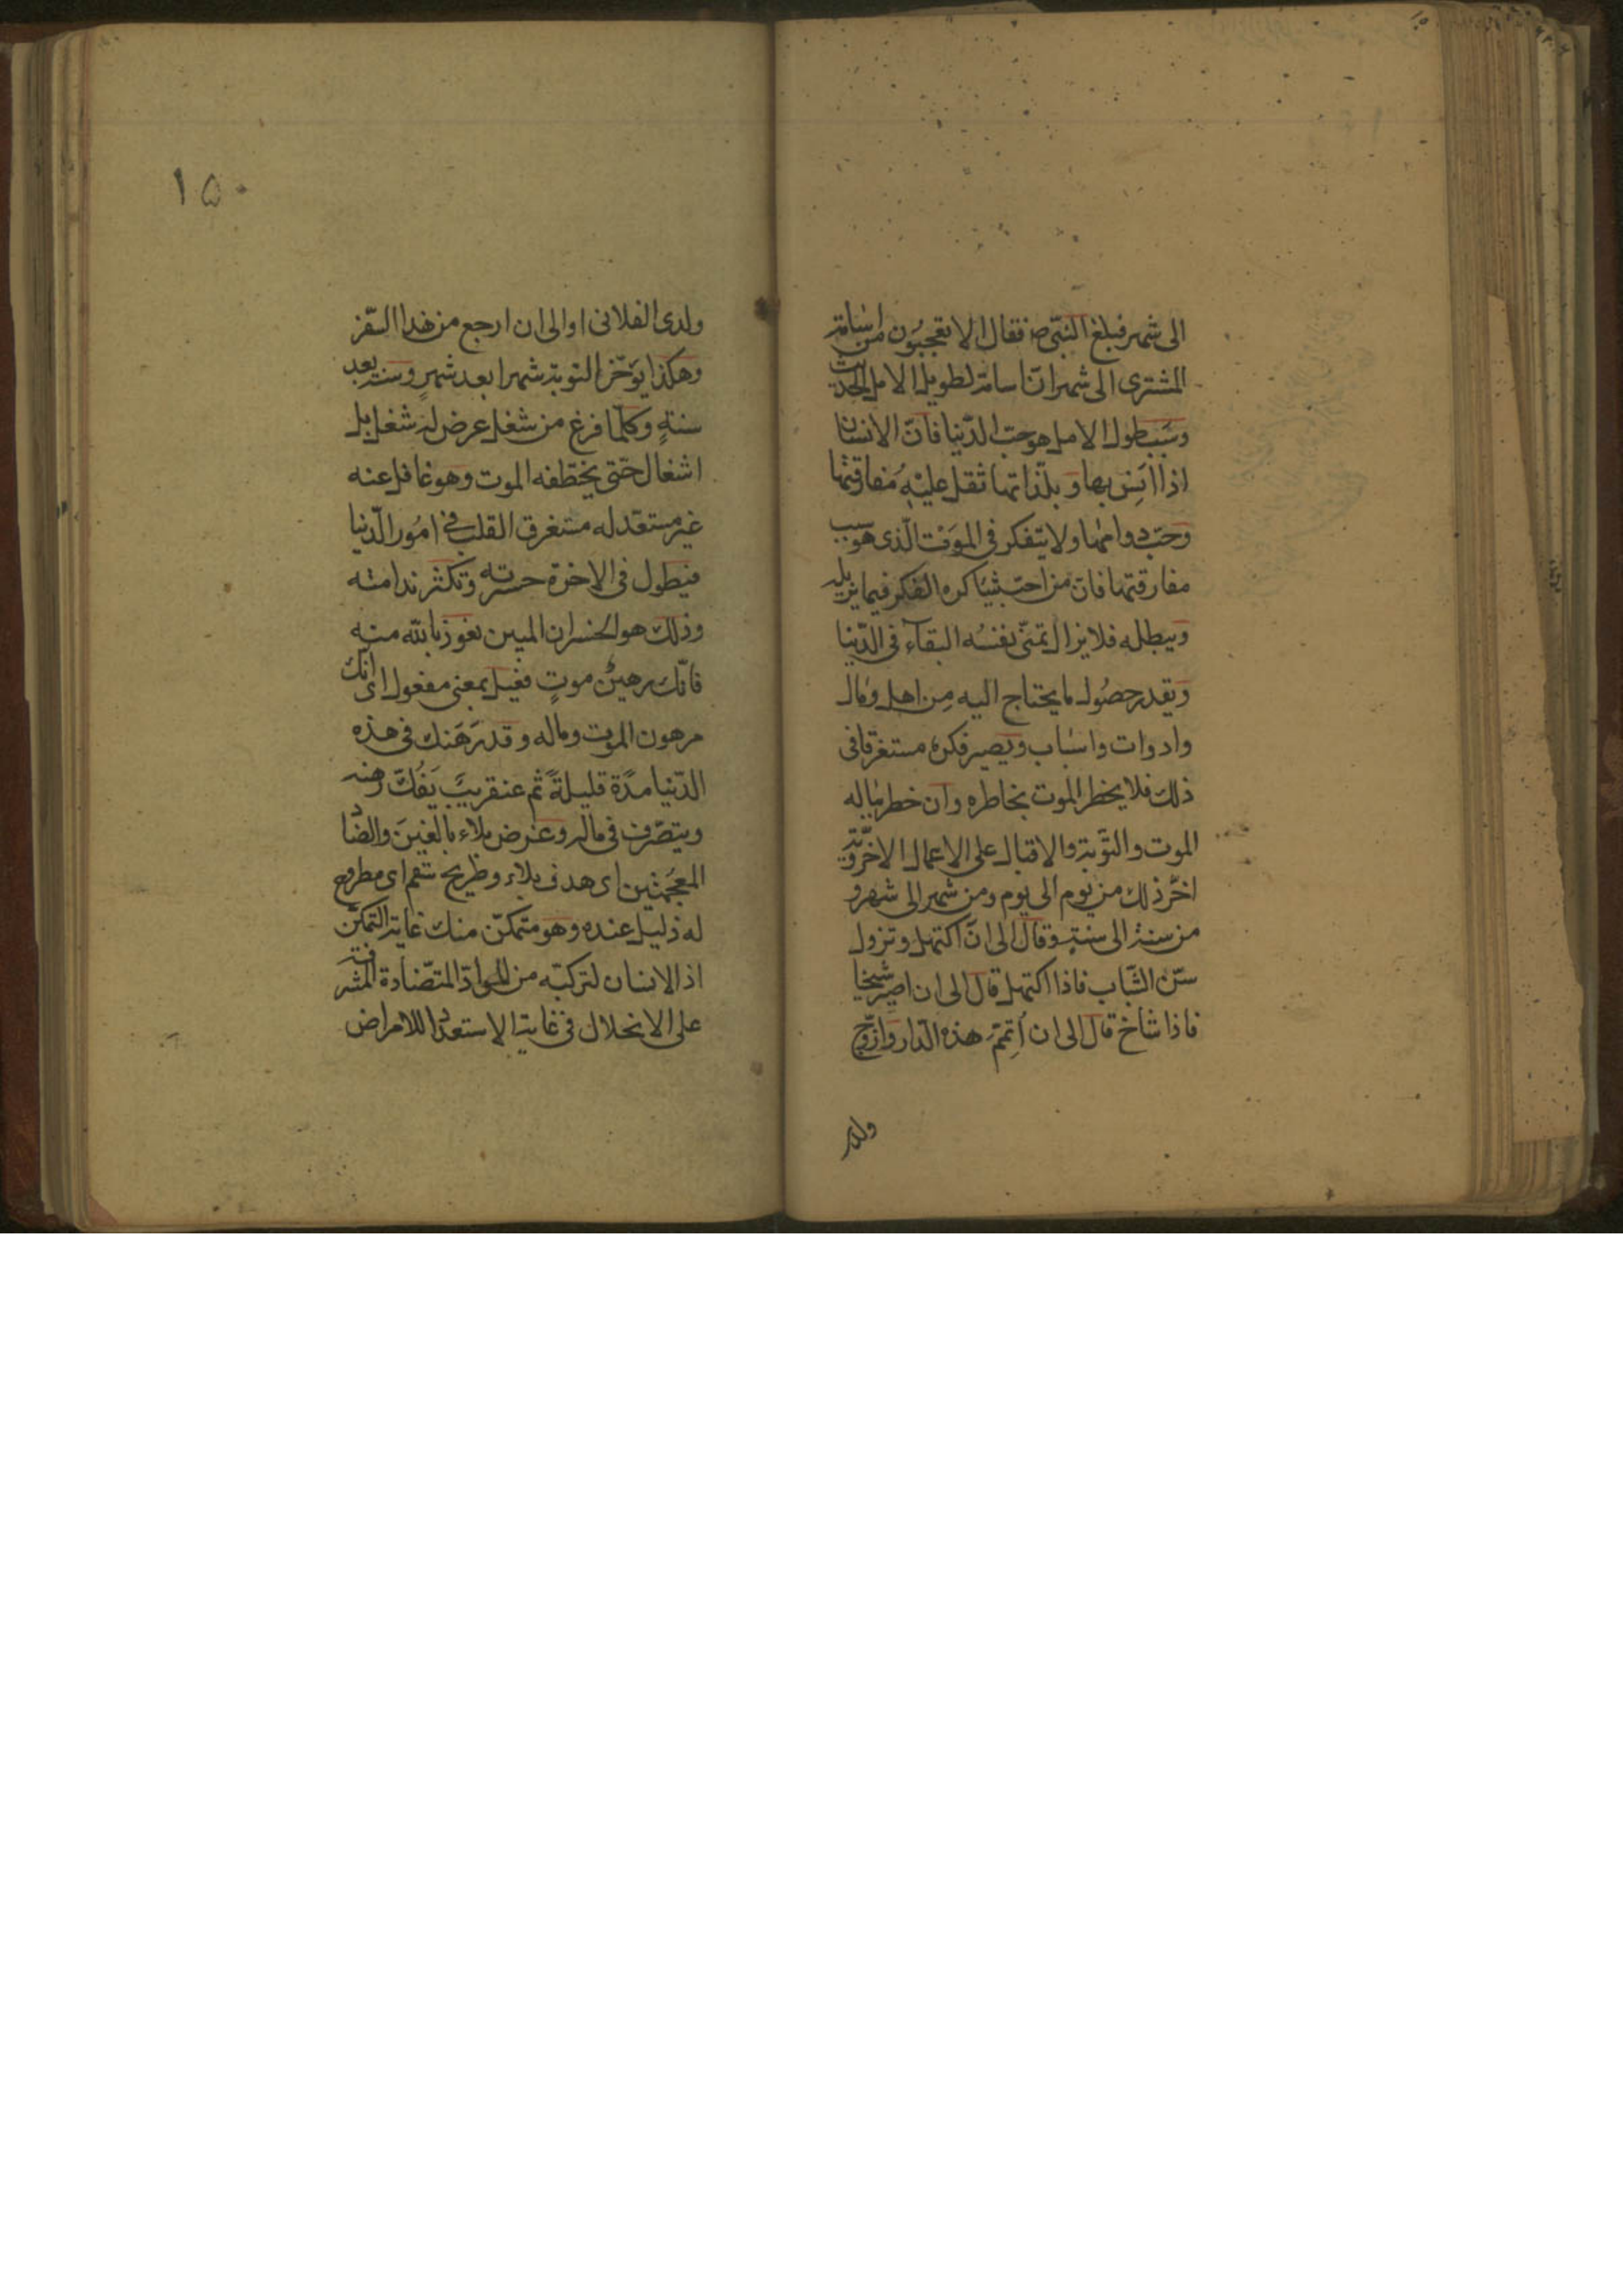 الى شهر فبلغ النبى ص فقال الا تعجبون من اسامة
المشترى الى شهر ان اسامة لطويل الامل الحديث
وسبب طول الامل هو حب الدنيا فان الانسان
اذا انس بها و بلذاتها ثقل عليه مفارقتها
وحب دوامها ولا يتفكر فى الموت الذى هو سبب
مفارقتها فان من احب شيئا كره الفكر فيما يزيله
ويبطله فلا يزال تمنى نفسه البقاء فى الدنيا
ويقدر حصول ما يحتاج اليه من اهل ومال
وادوات واسباب ويصير فكره مستغرقا فى
ذلك فلا يخطر الموت بخاطره وان خطر بباله
الموت والتوبة والاقبال على الاعمال الاخروية
اخر ذلك من يوم الى يوم ومن شهر الى شهر و
من سنة الى سنة وقال الى ان اكتهل وتزول
سن الشباب فاذا اكتهل قال الى ان اصير شيخا
فاذا شاخ قال الى ان اتمم هذه الدار وازوج
ولدى
١٥٠
ولدى الفلانى او الى ان ارجع من هذا السفر
وهكذا يؤخر التوبة شهرا بعد شهر وسنة بعد
سنة وكلما فرغ من شغل عرض له شغل بل
اشغال حتى يختطفه الموت وهو غافل عنه
غير مستعد له مستغرق القلب فى امور الدنيا
فيطول فى الاخرة حسرته وتكثر ندامته
وذلك هو الخسران المبين نعوذ بالله منه
فانك رهين موت فعيل بمعنى مفعول اى انك
مرهون الموت وماله و قد رهنك فى هذه
الدنيا مدة قليلة ثم عنقريب يفك رهنه
ويتصرف فى ماله وغرض بلاء بالغين والضاد
المعجمتين اى هدف بلاء وطريح سقم اى مطروح
له ذليل عنده وهو متمكن منك غاية التمكن
اذ الانسان لتركبه من المواد المتضادة المشرفة
على الانحلال فى غاية الاستعداد للامراض